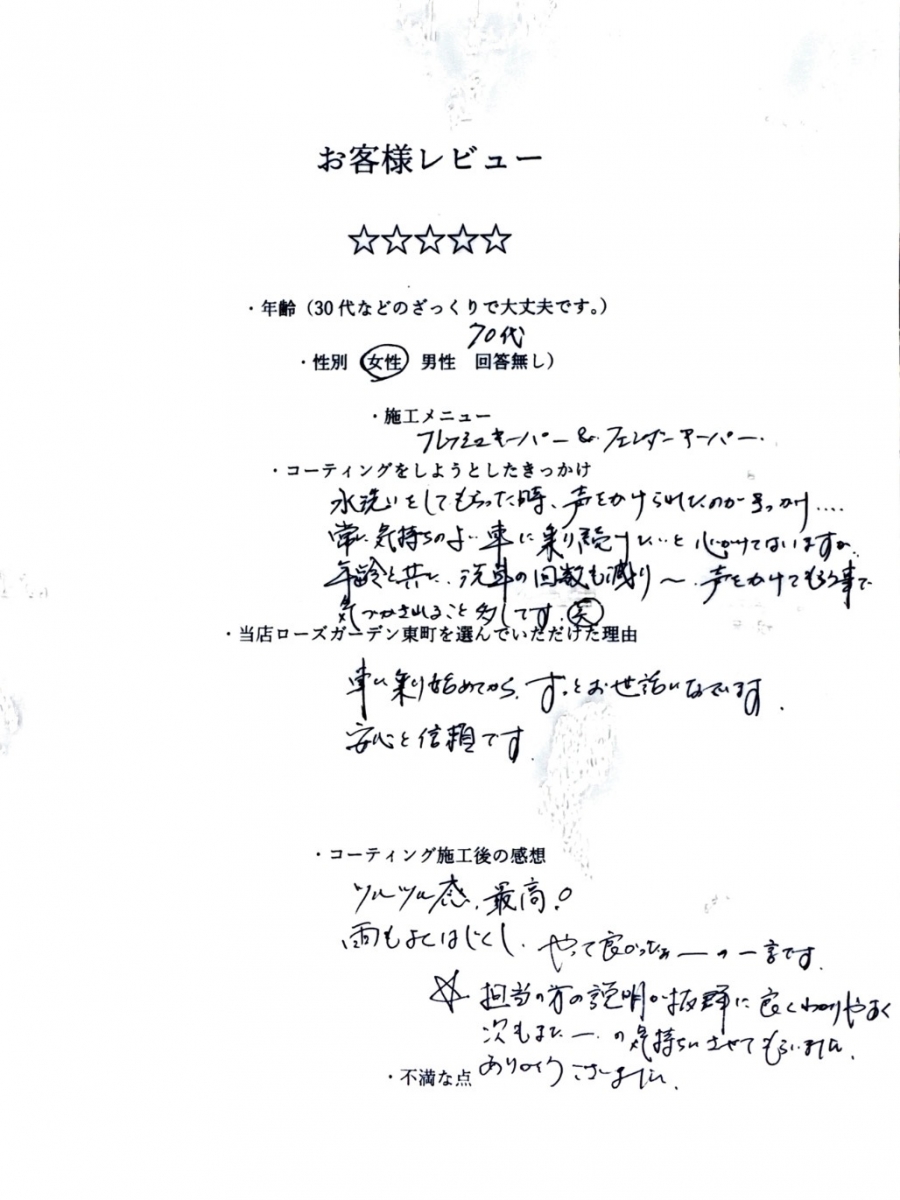 お客様レビュー
☆☆☆☆☆
・年齢（30代などのざっくりで大丈夫です。）
70代
・性別 女性 男性 回答無し）
・施工メニュー
フレッシュキーパー & フェンダーキーパー.
・コーティングをしようとしたきっかけ
水洗いをしてもらった時、声をかけられたのがきっかけ....
常に気持ちのよい車に乗り続けたいと心がけてはいますが
年齢と共に、洗車の回数も減り〜 声をかけてもらう事で
気づかされること多しです. 笑
・当店ローズガーデン東町を選んでいただけた理由
車に乗り始めてから、ずっとお世話になっています.
安心と信頼です
・コーティング施工後の感想
ツルツル感、最高!
雨もよくはじくし、やって良かったぁーの一言です.
☆ 担当の方の説明が抜群に良くわかりやすく
次もまたー.の気持ちにさせてもらいました.
ありがとうございました.
・不満な点